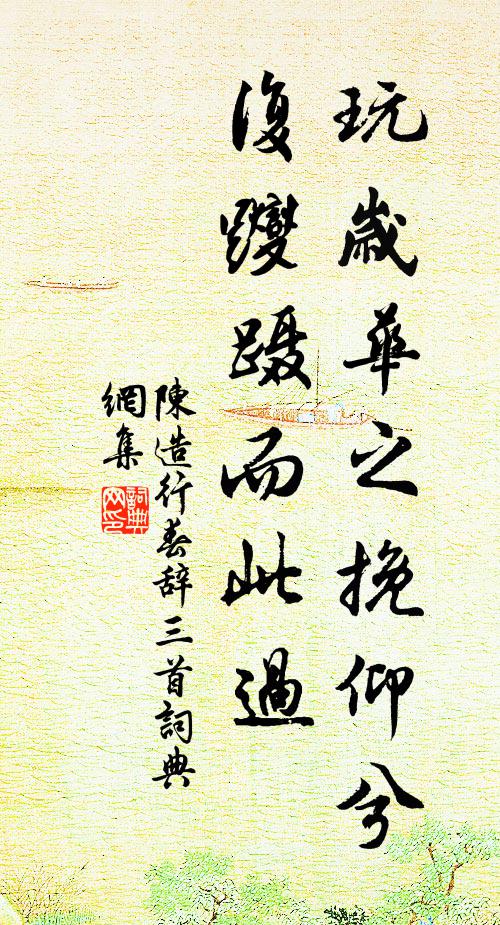 玩歲華之挽仰兮
復躞蹑而此過
陳造行春辞三首詞典
網集
詞典
网印